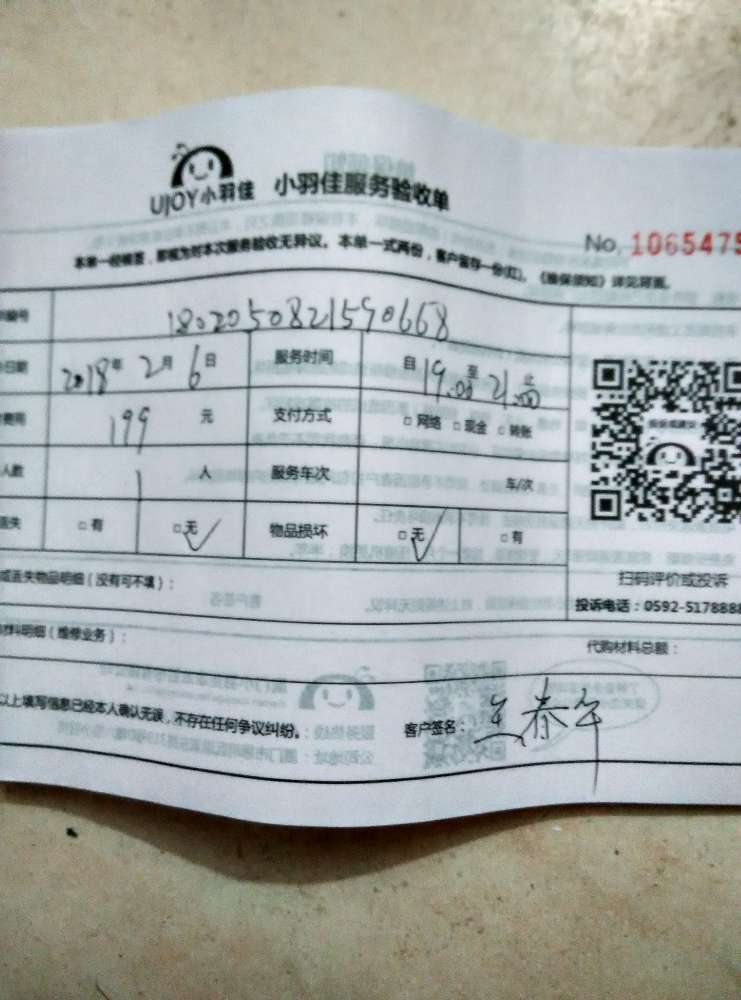 UJOY小羽佳 小羽佳服务验收单
No. 1065475
本单一经签署，即视为对本次服务验收无异议。本单一式两份，客户留存一份(红)。《维保须知》详见背面。
编号 1802050821590668
日期 2018年2月6日 服务时间 自19:00至21:00止
费用 199元 支付方式 □网络 □现金 □转账
人数 1人 服务车次 车/次
遗失 □有 □无✓ 物品损坏 □无✓ □有
或遗失物品明细（没有可不填）：
扫码评价或投诉
投诉电话：0592-5178888
材料明细（维修业务）：
代购材料总额：
以上填写信息已经本人确认无误，不存在任何争议纠纷。 客户签名：